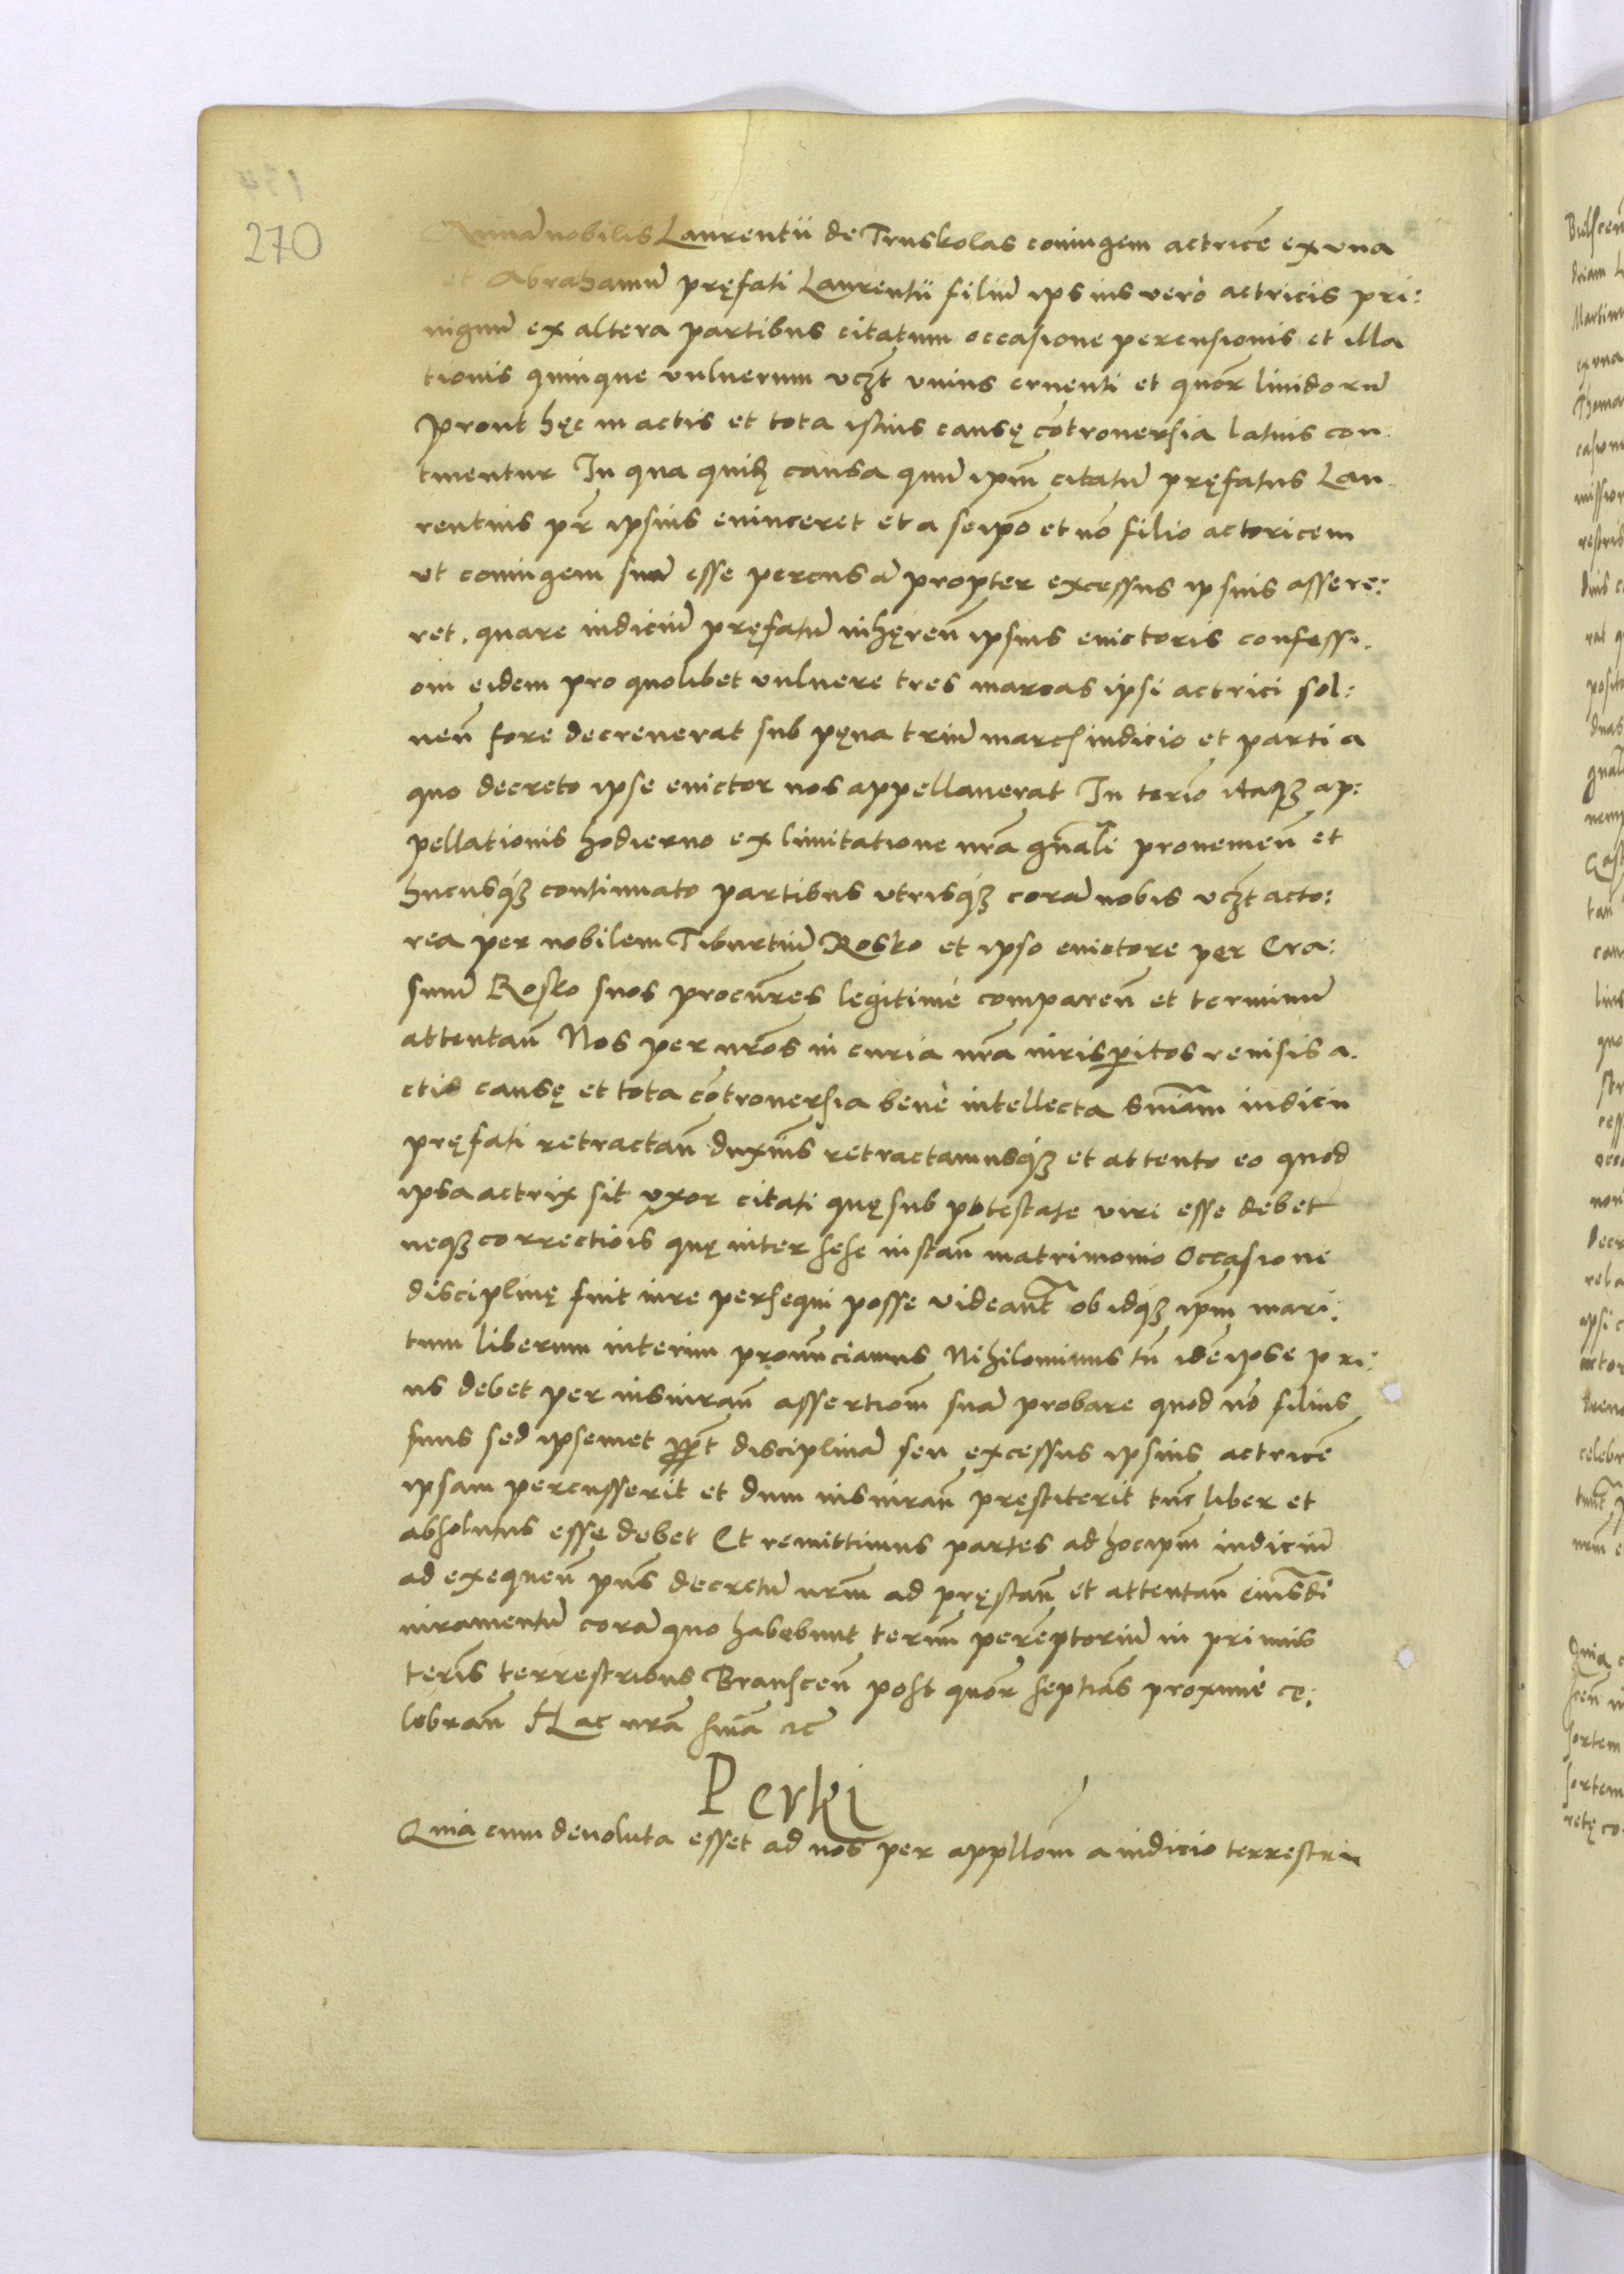 270
Annā nobilis Laurentii de Truskolas coniugem actricē ex vna
et Abrahamū pręfati Laurentii filiū ipsius vero actricis pri:
uignū ex altera partibus citatum occasione percusionis et illa
tionis quinque vulnerum vczt vnius cruenti et quōr liuidorū
prout hęc in actis et tota istius causę cōtrouersia latius con
tinentur In qua quidē causa quū ipm̄ citatū pręfatus Lau
rentius pr̄ ipsius euinceret et a seipō et nō filio actoricem
vt coniugem suā esse percusā propter excessus ipsius assere:
ret. quare iudiciū pręfatū inhęren̄ ipsius euictoris confessi.
oni eidem pro quolibet vulnere tres marcas ipsi actrici sol:
uen̄ fore decreuerat sub pęna triū march iudicio et parti a
quo decreto ipse euictor nos appellauerat In terīo itaqȝ ap:
pellationis hodierno ex limitatione nrā gn̄ali prouenien̄ et
hucusqȝ continuato partibus vtrisqȝ corā nobis vczt acto:
rea per nobilem Tiburtiū Rosko et ipso euictore per Cra:
sum̄ Rosko suos procur̄es legitime comparen̄ et terminū
attentan̄ Nos per nrōs in curia nrā iurisperitos reuisis a.
ctis causę et tota cōtrouersia bene intellecta sniam iudicii
pręfati retractan̄ duxim̄us retractamusqȝ et attento eo quod
ipsa actrix sit vxor citati quę sub potestate viri esse debet
neqȝ correctiōis quę inter sese instan̄ matrimonio occasione
disciplinę fuit iure persequi posse videant̄ ob idqȝ ipm̄ mari:
tum liberum interim pronūciamus Nihilominus tn̄ idē ipse pri:
us debet per iusiuran̄ assertiom̄ suā probare quod nō filius
suus sed ipsemet ppt̄ disciplinā seu excessus ipsius actricē
ipsam percusserit et dum iusiuran̄ pręstiterit tūc liber et
absolutus esse debet Et remittimus partes ad hoc ipm̄ iudiciū
ad exequen̄ pn̄s decretū nrm̄ ad pręstan̄ et attentan̄ eiusdī
iuramentū corā quo habebunt term̄ perēptoriū in primis
terīs terrestribus Branscen̄ post quōr septiās proxime ce:
lebran̄ Hac nrā sniā ec̄
Perki
Quia cum deuoluta esset ad nos per appllōm a iudicio terrestri